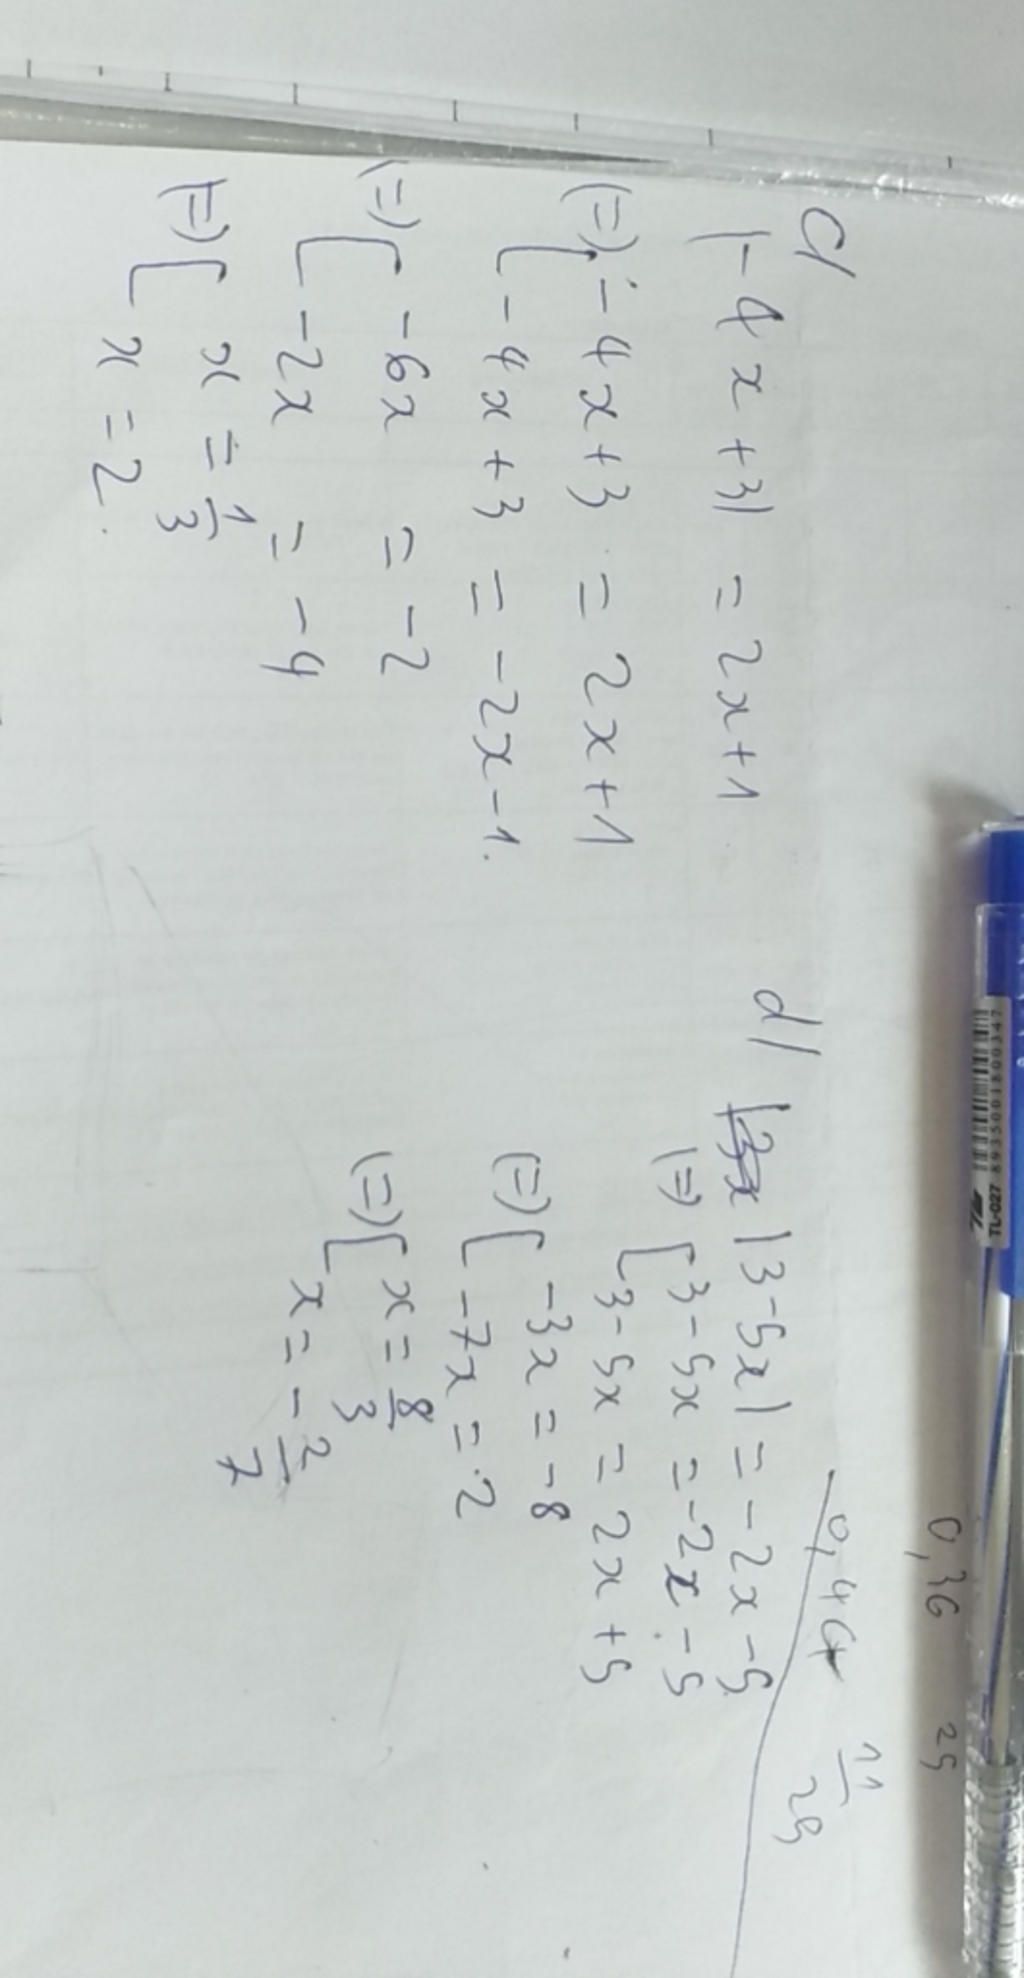 c/
|-4x+3| = 2x+1
(=) [ -4x+3 = 2x+1
-4x+3 = -2x-1.
(=) [ -6x = -2
-2x = -4
(=) [ x = 1/3
x = 2.
d/ |3-5x| = -2x-5
(=) [ 3-5x = -2x-5
3-5x = 2x+5
(=) [ -3x = -8
-7x = 2
(=) [ x = 8/3
x = -2/7
0,44
11/25
0,36 25
8935001800347
TL-027